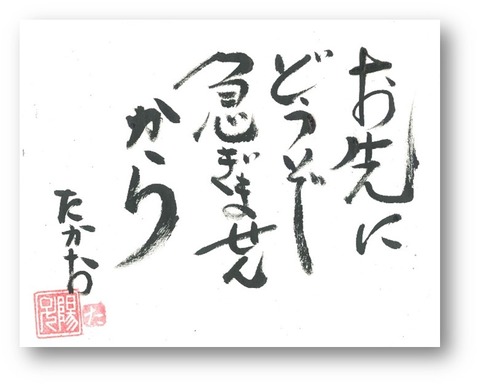 お先に
どうぞ
急ぎません
から
たかお
た